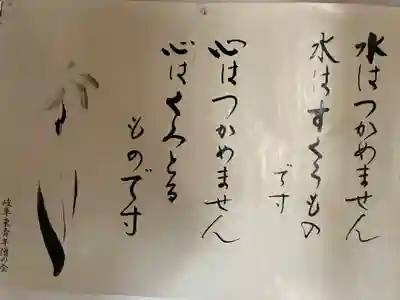 水はつかめません
水はすくうもの
です
心はつかめません
心はくみとる
ものです
香り
岐阜東青年僧の会